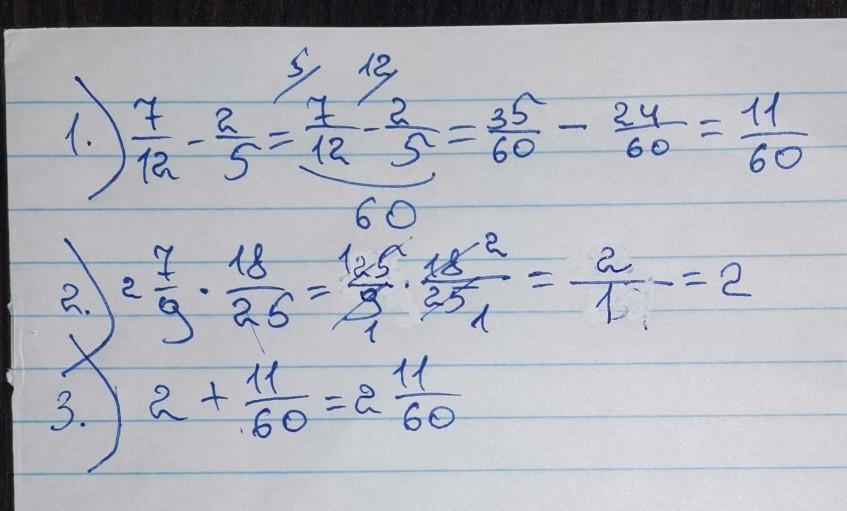 5/ 12/
1.) 7/12 - 2/5 = 7/12 - 2/5 = 35/60 - 24/60 = 11/60
60
2.) 2 7/9 · 18/25 = 1 25/9 1 · 18 2/25 1 = 2/1 = 2
3.) 2 + 11/60 = 2 11/60